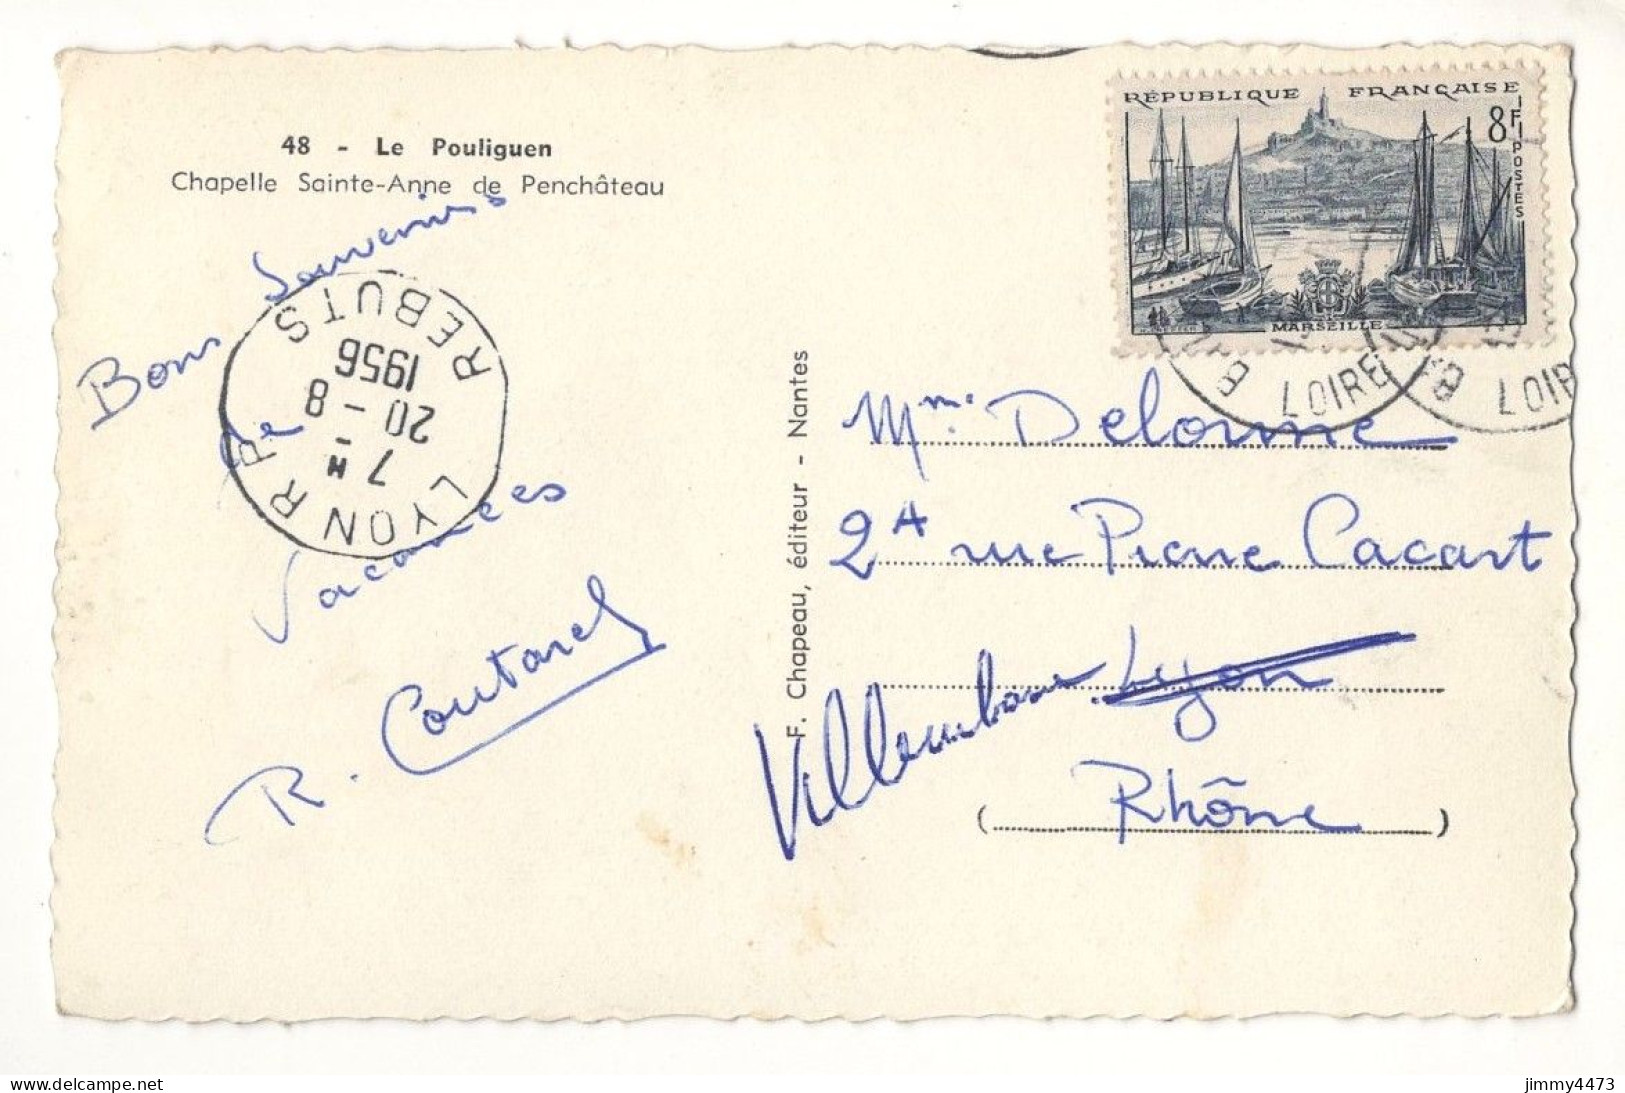 48 - Le Pouliguen
Chapelle Sainte-Anne de Penchâteau
Bons Souvenirs
de
Vacances
R. Coutarel
LYON R P REBUTS
7 H -
20 - 8
1956
F. Chapeau, éditeur - Nantes
RÉPUBLIQUE FRANÇAISE
8F
POSTES
MARSEILLE
LOIRE
LOIR
Mme. Delorme
2A rue Pierre Cacart
Villeurbanne Lyon
( Rhône )
delcampe.net
jimmy4473